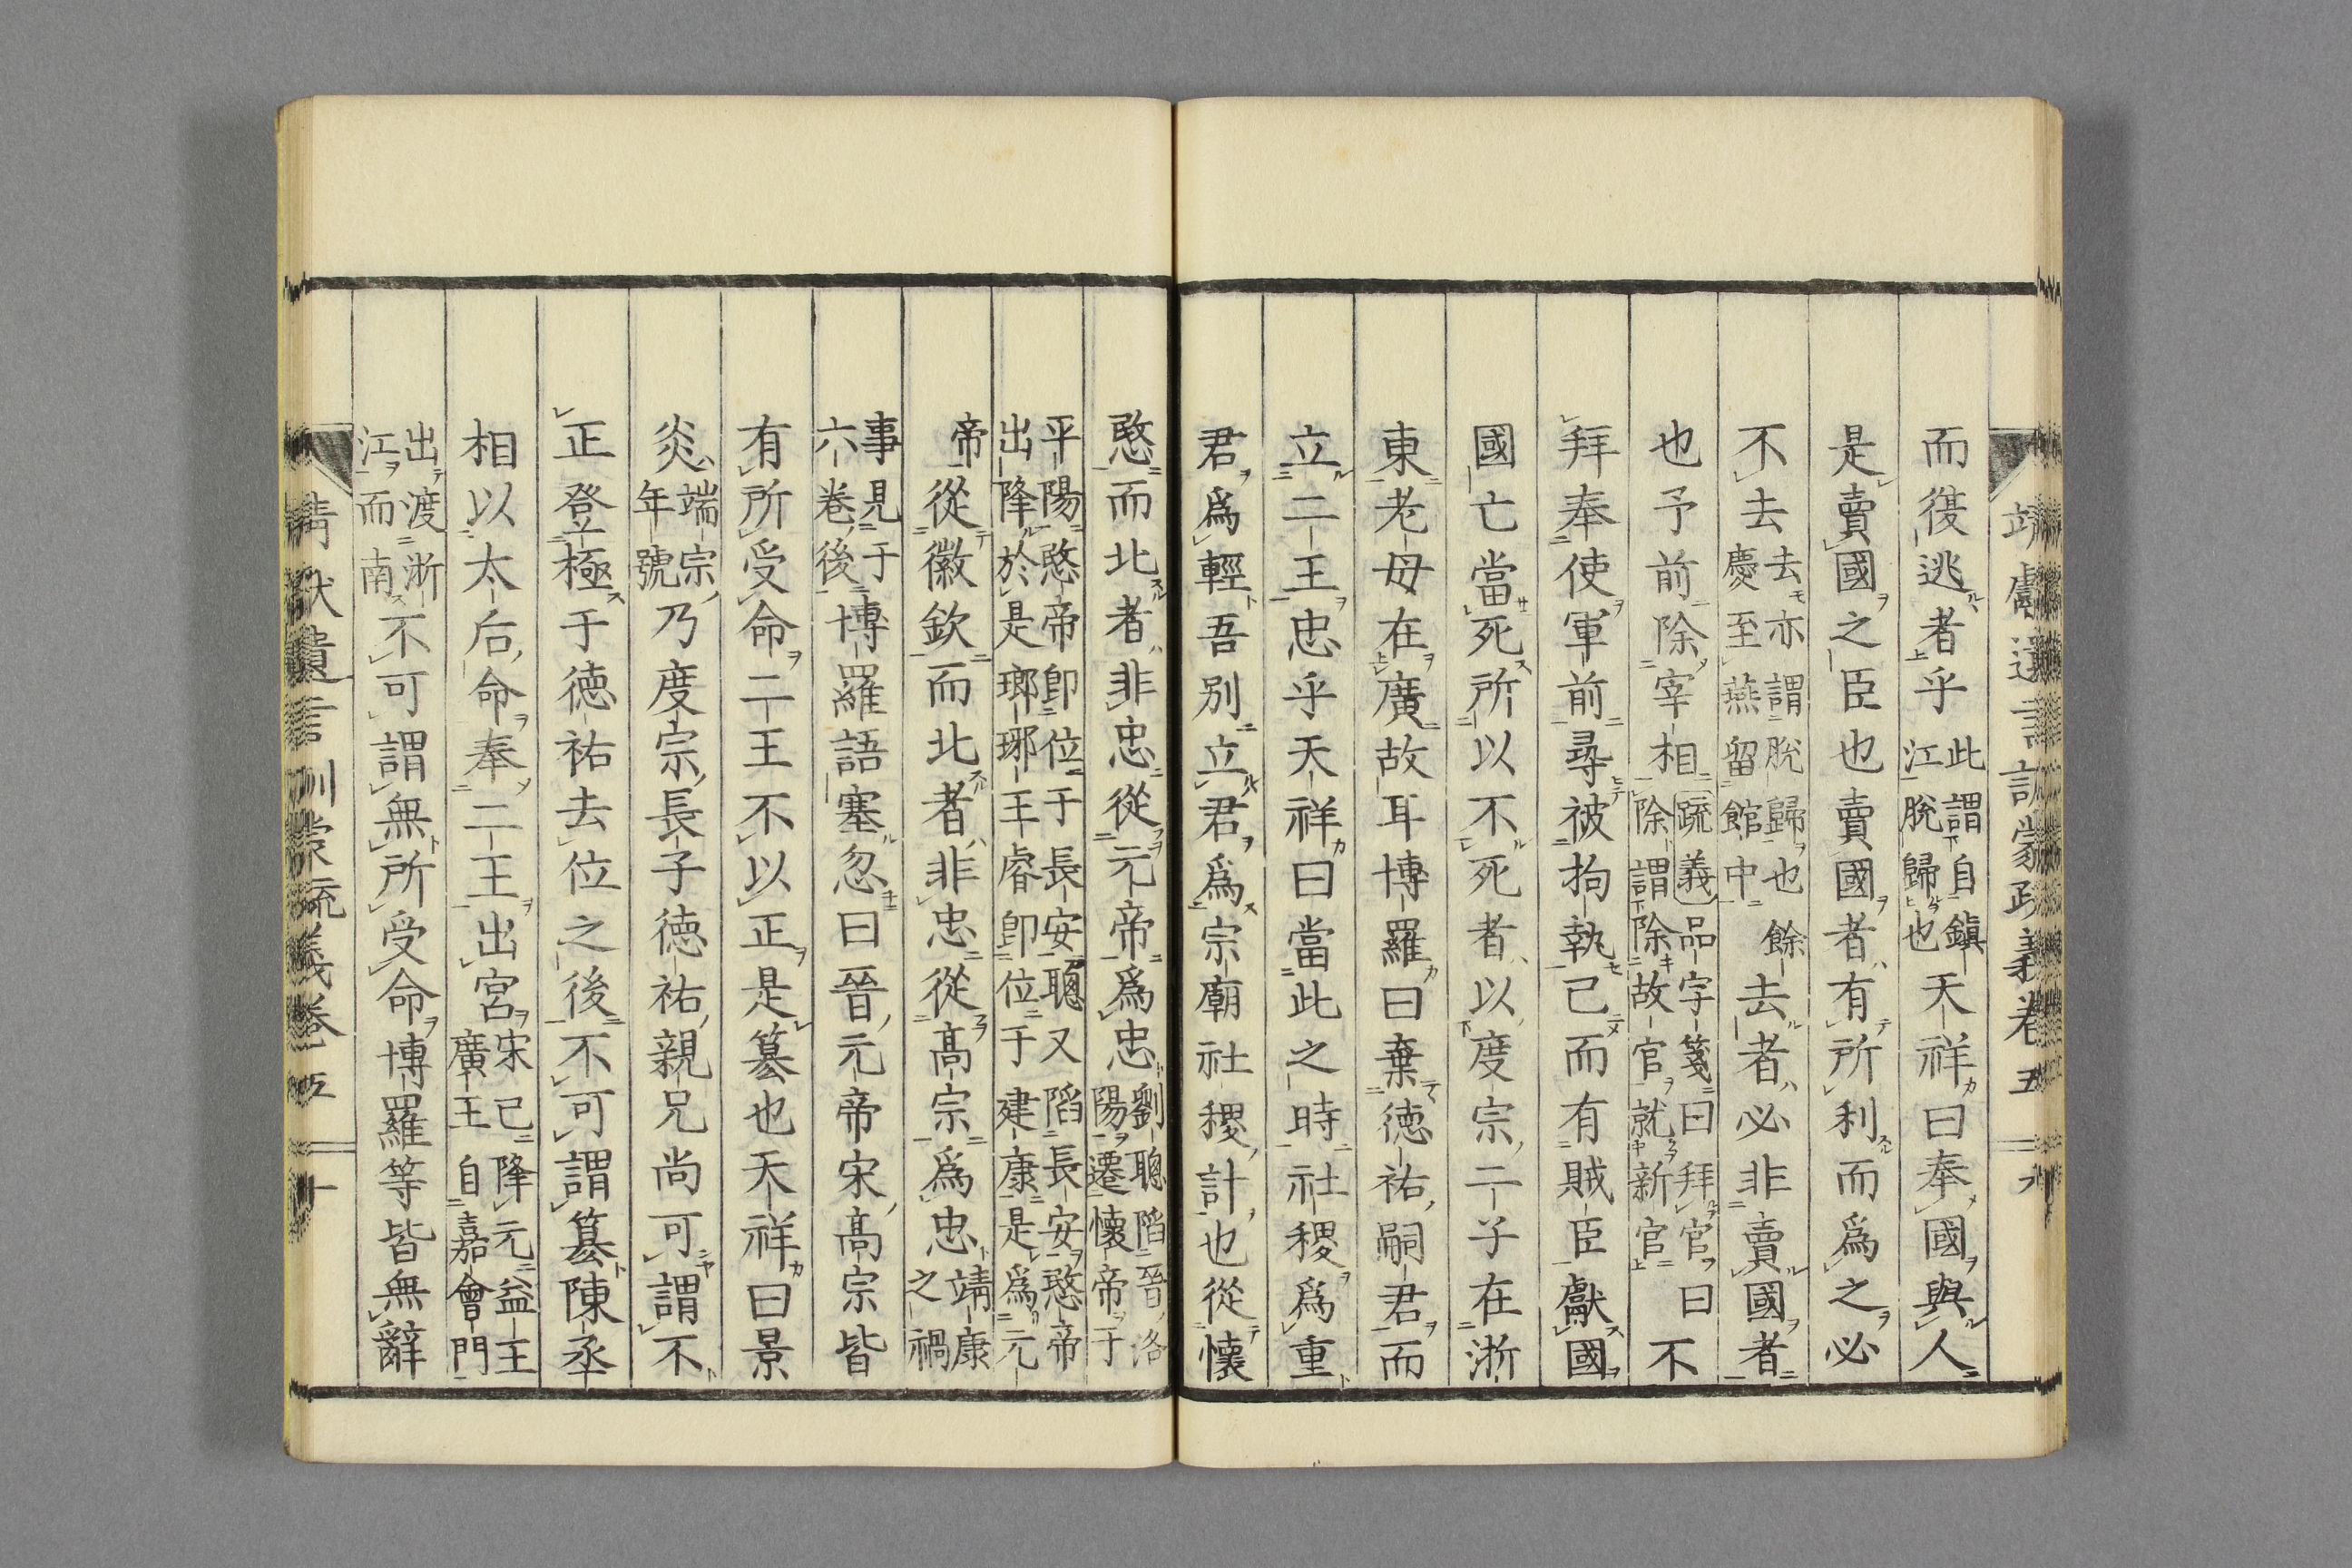 靖獻遺言訓蒙疏義卷五 九
而復逃者乎此謂自鎮江脫歸也天祥曰奉國與人
是賣國之臣也賣國者有所利而爲之必
不去去亦謂脫歸也餘慶至燕留館中去者必非賣國者
也予前除宰相疏義品字箋曰拜官曰除謂除故官就新官不
拜奉使軍前尋被拘執已而有賊臣獻國
國亡當死所以不死者以度宗二子在浙
東老母在廣故耳博羅曰棄德祐嗣君而
立二王忠乎天祥曰當此之時社稷爲重
君爲輕吾別立君爲宗廟社稷計也從懷
愍而北者非忠從元帝爲忠劉聰陷晉洛陽遷懷帝于
平陽愍帝卽位于長安聰又陷長安愍帝出降於是瑯琊王睿卽位于建康是爲元
帝從徽欽而北者非忠從高宗爲忠靖康之禍
事見于六卷後博羅語塞忽曰晉元帝宋高宗皆
有所受命二王不以正是簒也天祥曰景
炎端宗年號乃度宗長子德祐親兄尚可謂不
正登極于德祐去位之後不可謂簒陳丞
相以太后命奉二王出宮宋已降元益王廣王自嘉會門
出渡浙江而南不可謂無所受命博羅等皆無辭
靖獻遺言訓蒙疏義卷五 十